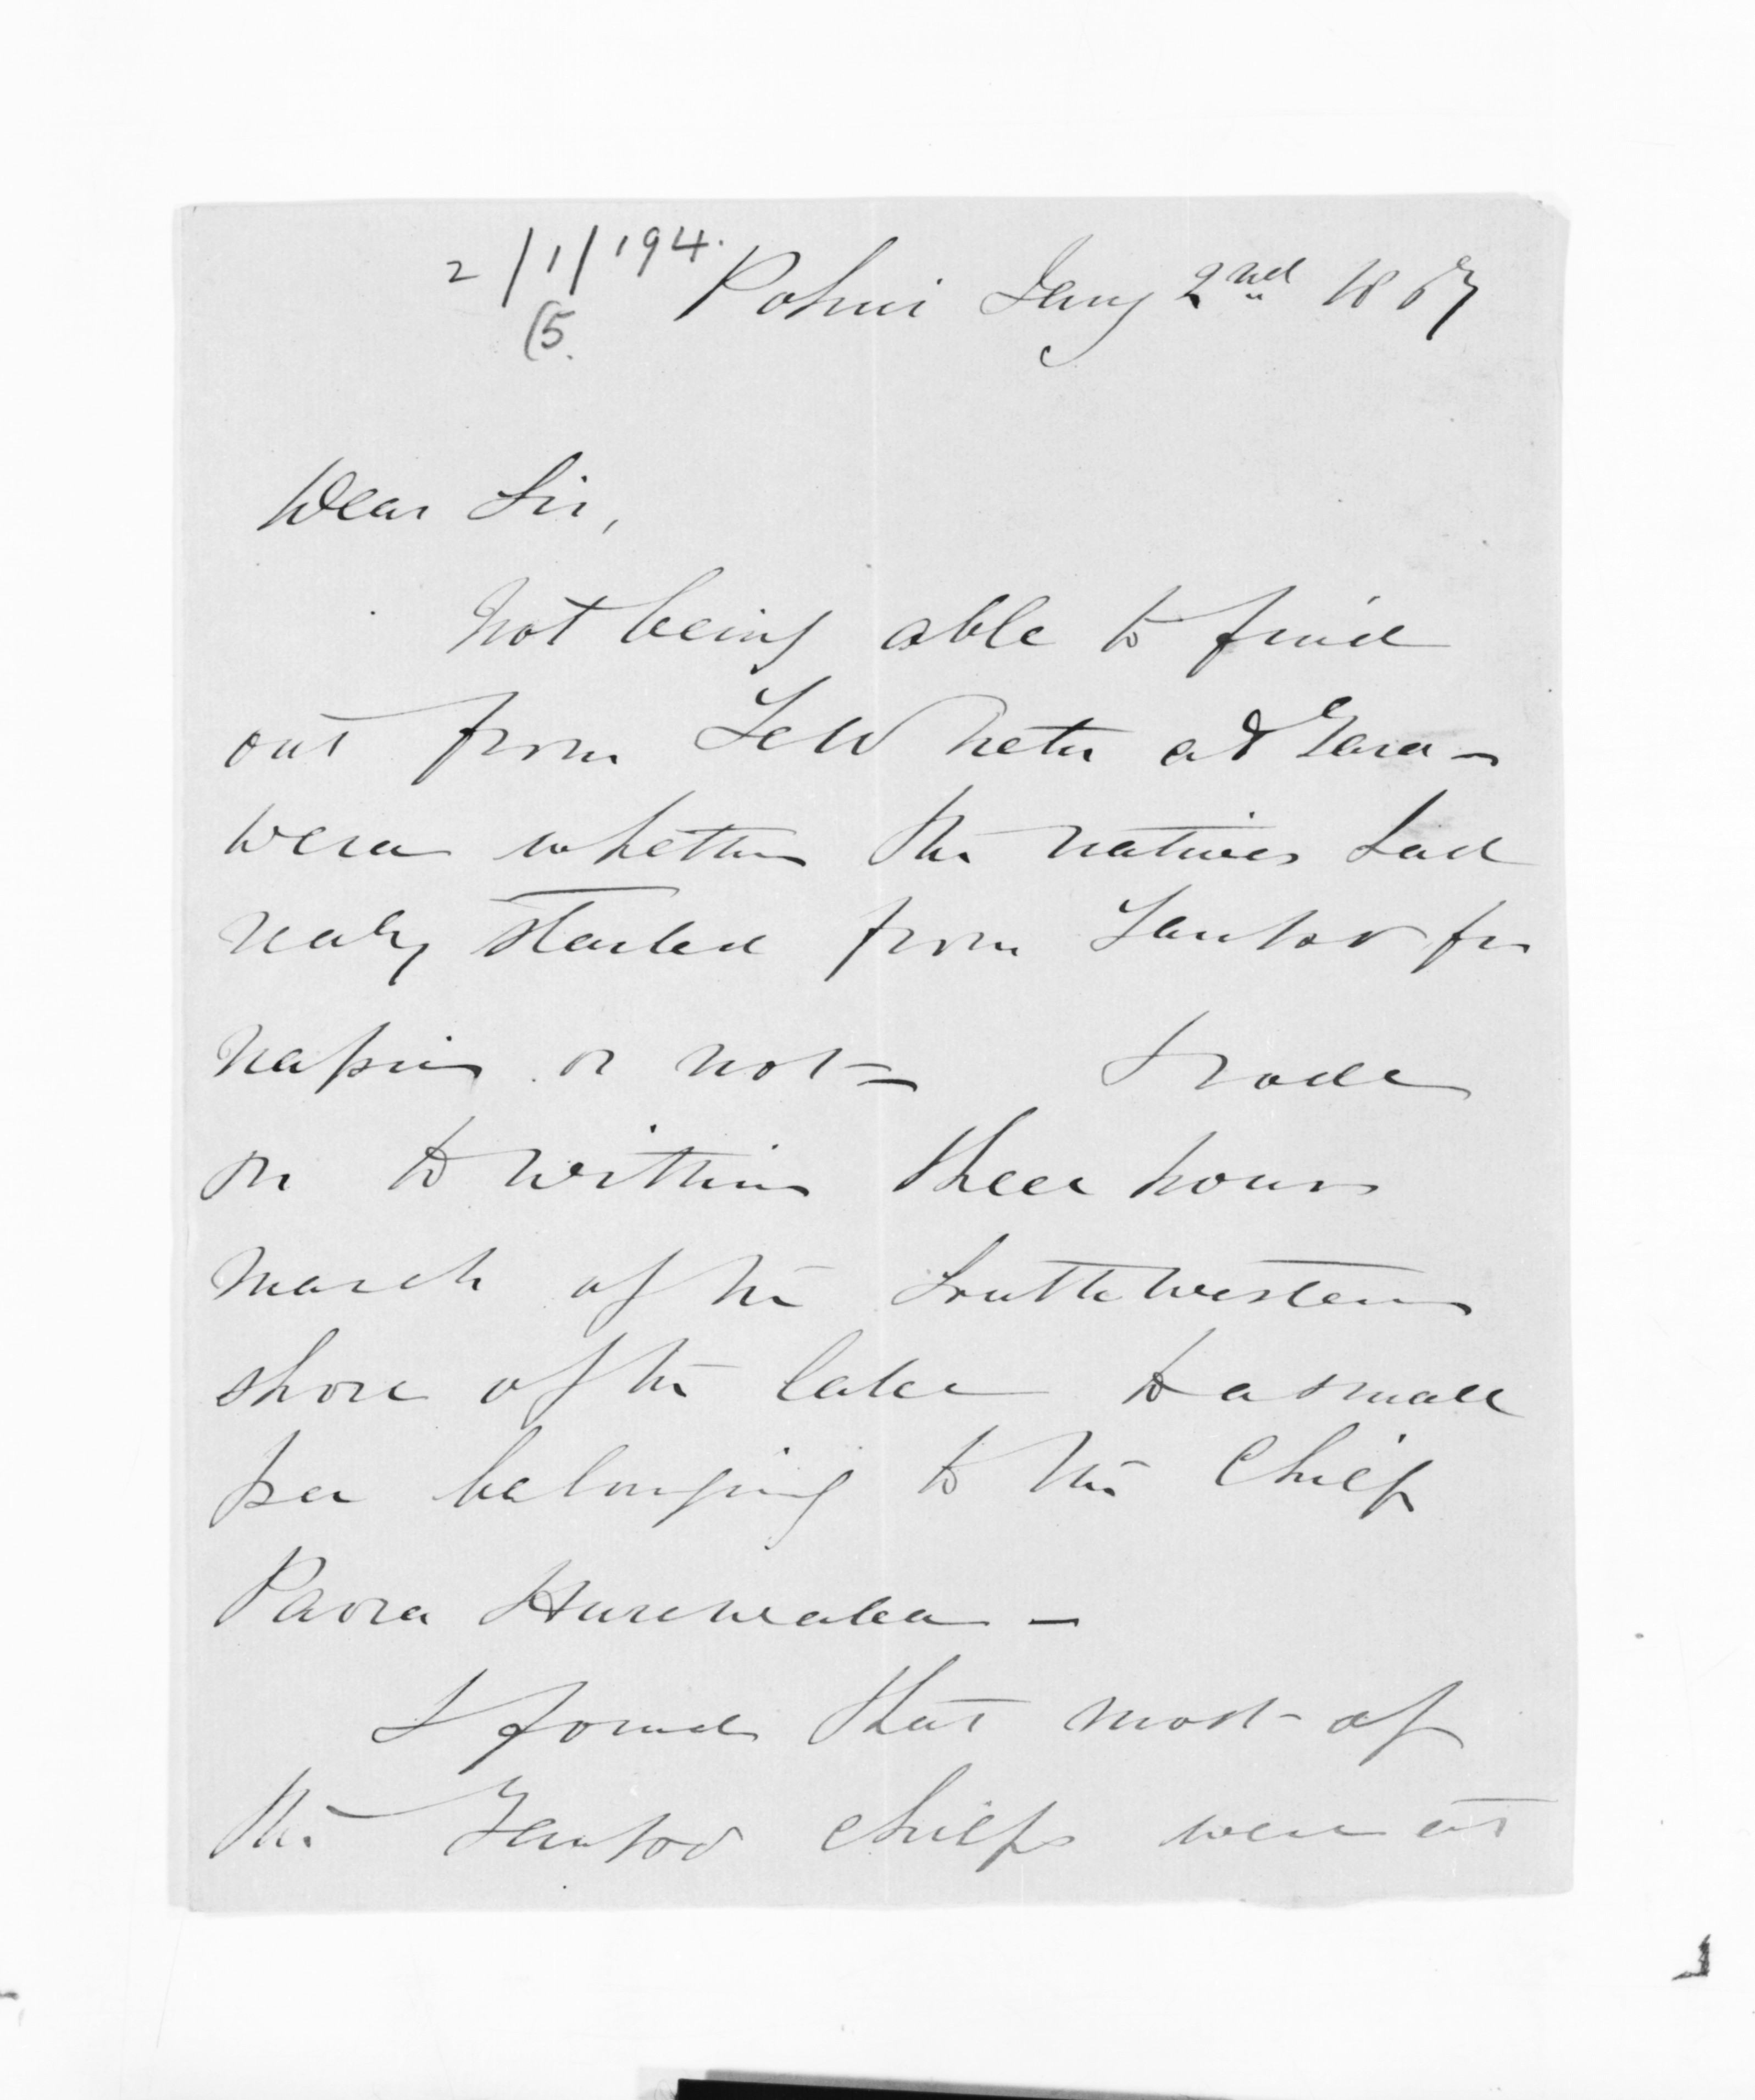 2/1/194.
(5.
Pohui Jany 2nd 1867
Dear Sir,
Not being able to find
out from Te Wheta at Tara-
wera whether the natives had
realy started from Taupo for
Napier or not - I rode
on to within three hours
march of the South western
shore of the lake to a small
pa belonging to the Chief
Paora
I found that most of
the Taupo chiefs were at